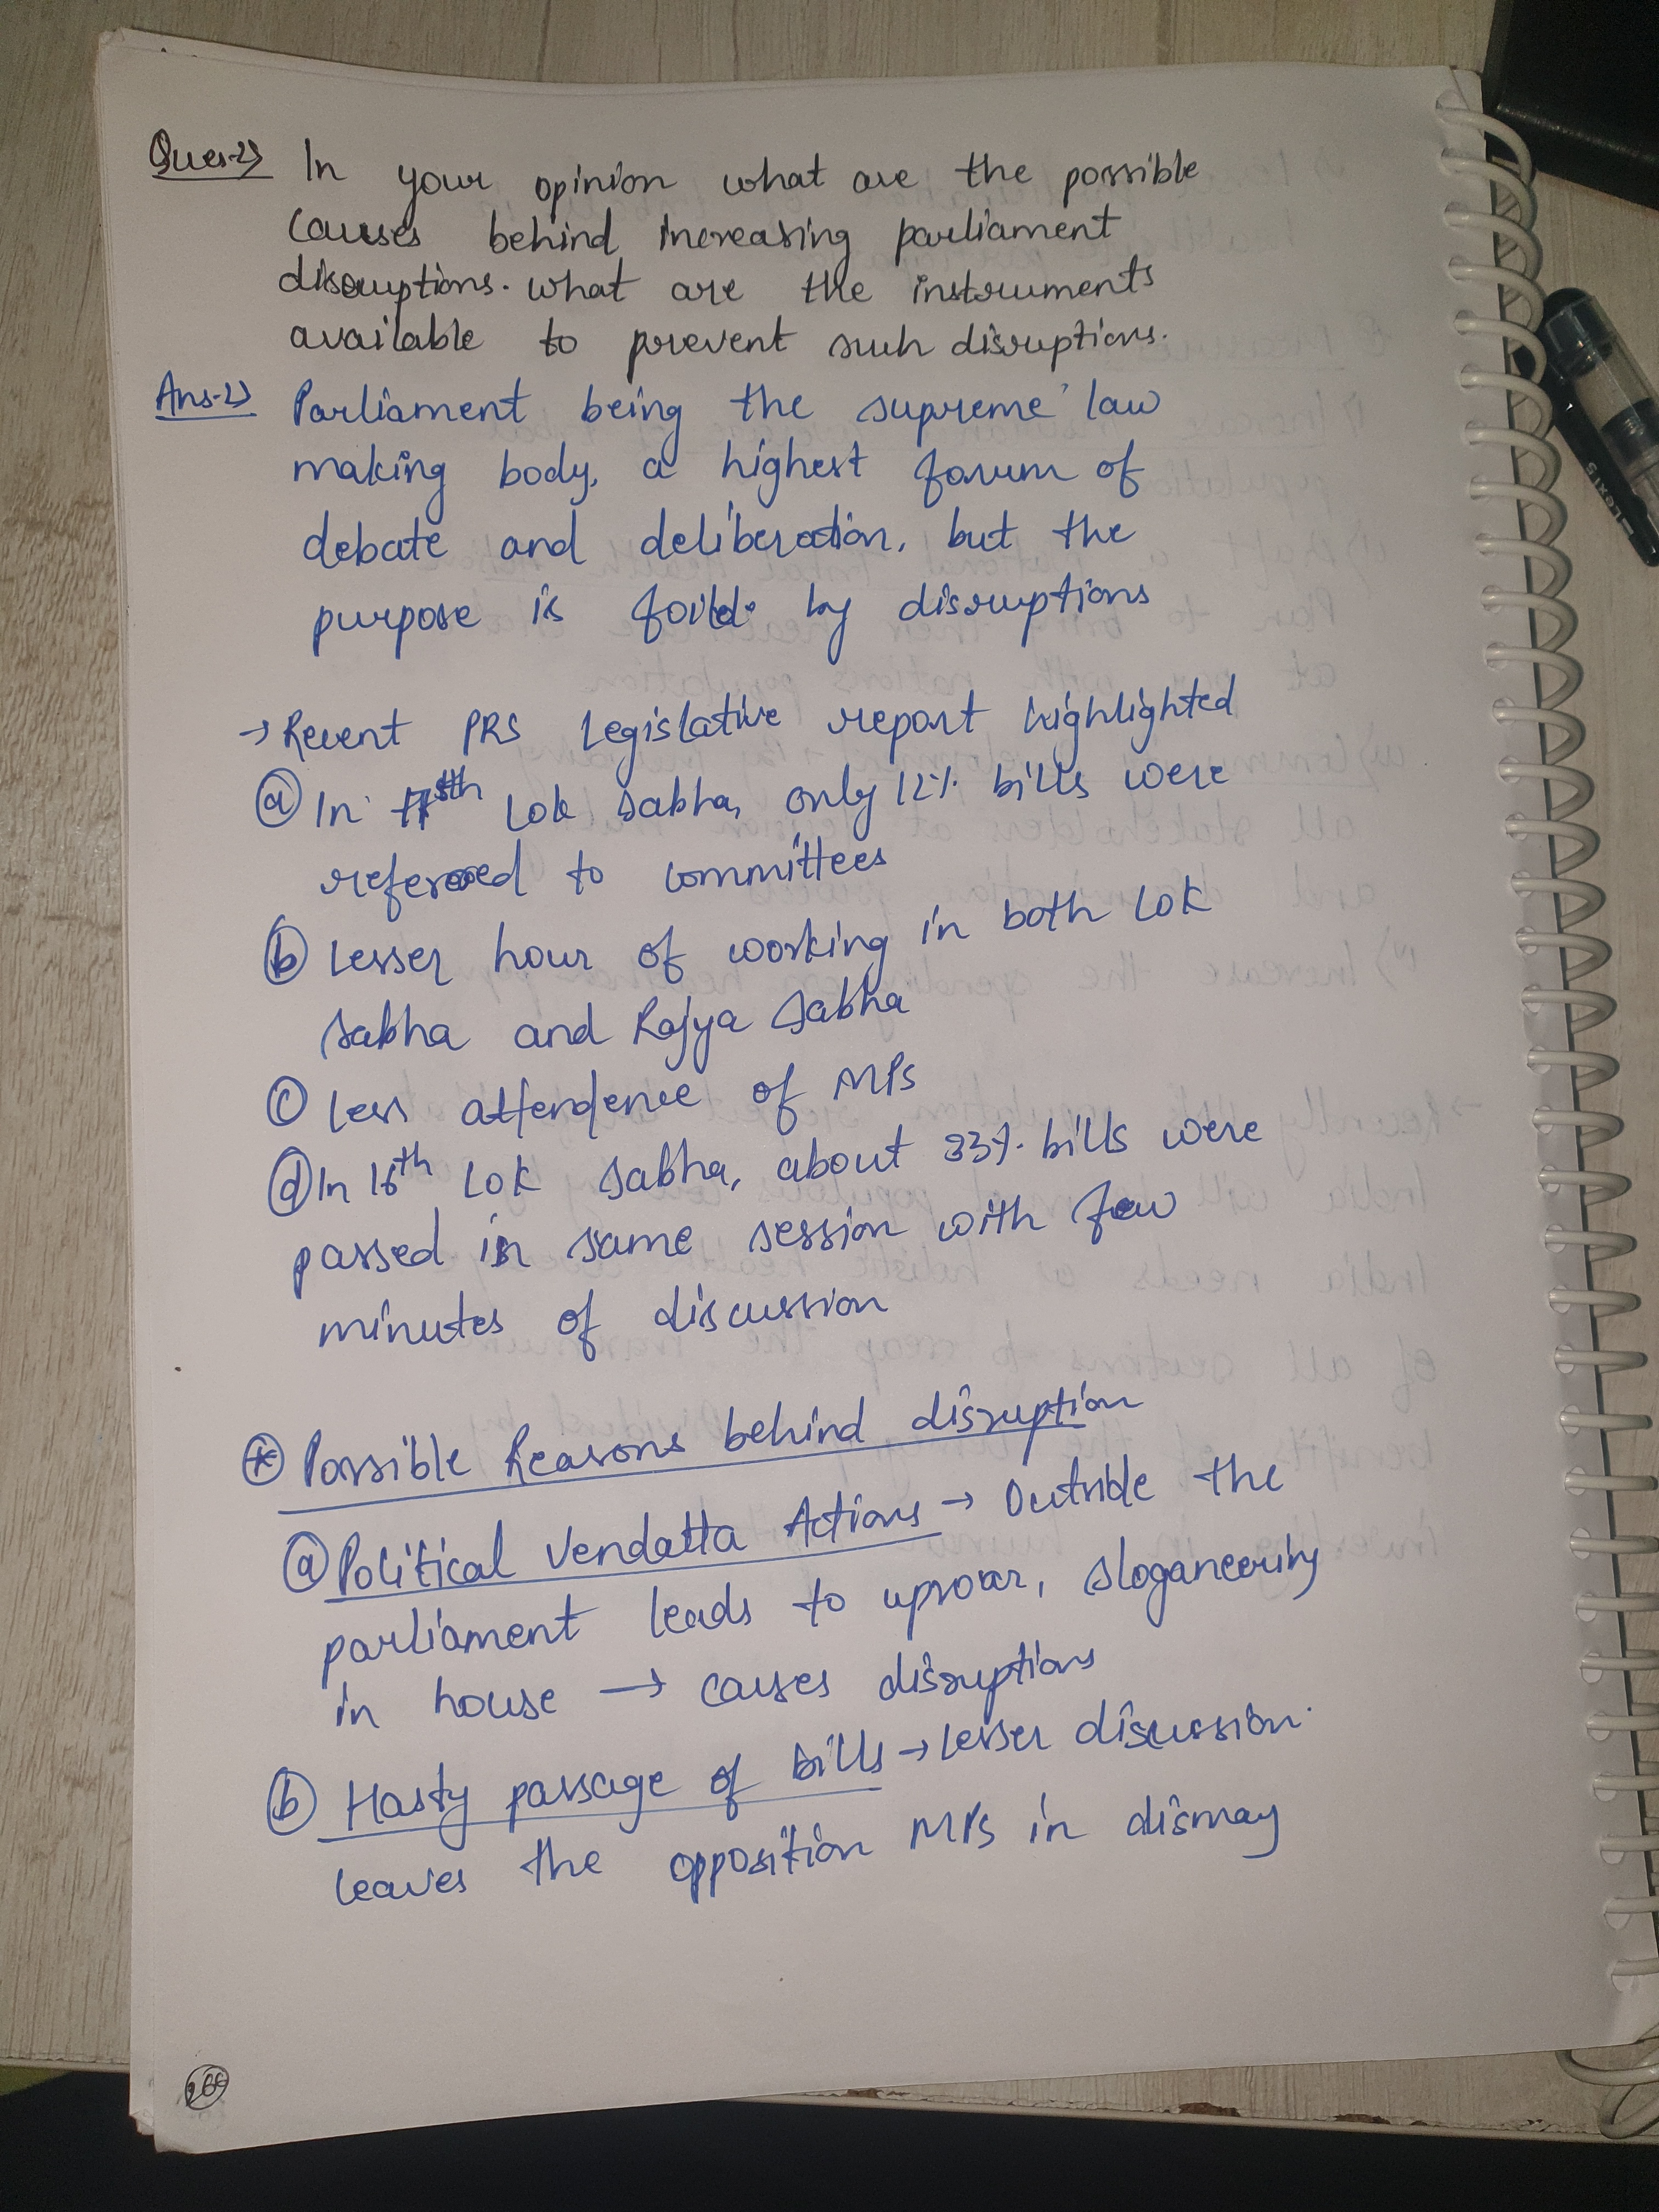 Ques-2) In your opinion what are the possible
causes behind increasing parliament
disruptions. what are the instruments
available to prevent such disruptions.
Ans-2) Parliament being the supreme law
making body, a highest forum of
debate and deliberation, but the
purpose is foild by disruptions
→ Recent PRS Legislative report highlighted
(a) In 17th Lok Sabha, only 12% bills were
refered to committees
(b) Lesser hour of working in both Lok
Sabha and Rajya Sabha
(c) Less attendence of MPs
(d) In 16th Lok Sabha, about 33% bills were
passed in same session with few
minutes of discussion
* Possible Reasons behind disruption
(a) Political Vendatta Actions → Outside the
parliament leads to uproar, sloganeering
in house → causes disruptions
(b) Hasty passage of bills → Lesser discussion.
leaves the opposition MPs in dismay